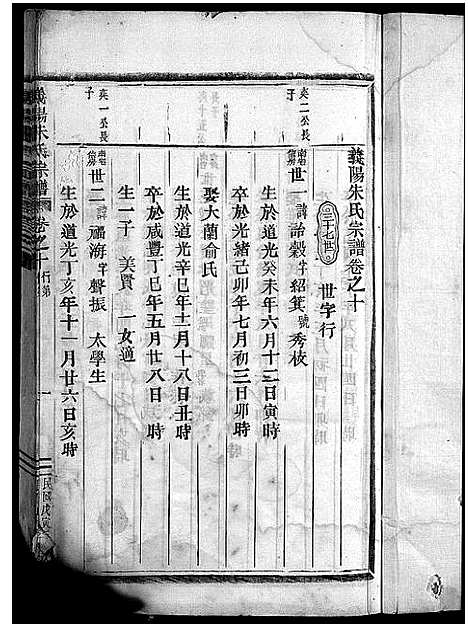 義陽朱氏宗譜卷之十
三十七世 世字行
奕二公長子
世一 諱詒穀字紹箕號秀枝
生於道光癸未年六月十三日寅時
卒於光緒己卯年七月初三日卯時
娶大蘭俞氏
生於道光辛巳年十二月十八日丑時
卒於咸豐丁巳年五月廿八日 時
生一子 美賢 一女適
奕一公長子
世二 福海字聲振 太學生
生於道光丁亥年十一月廿六日亥時
義陽朱氏宗譜 卷之十 行第 一 民國戊寅